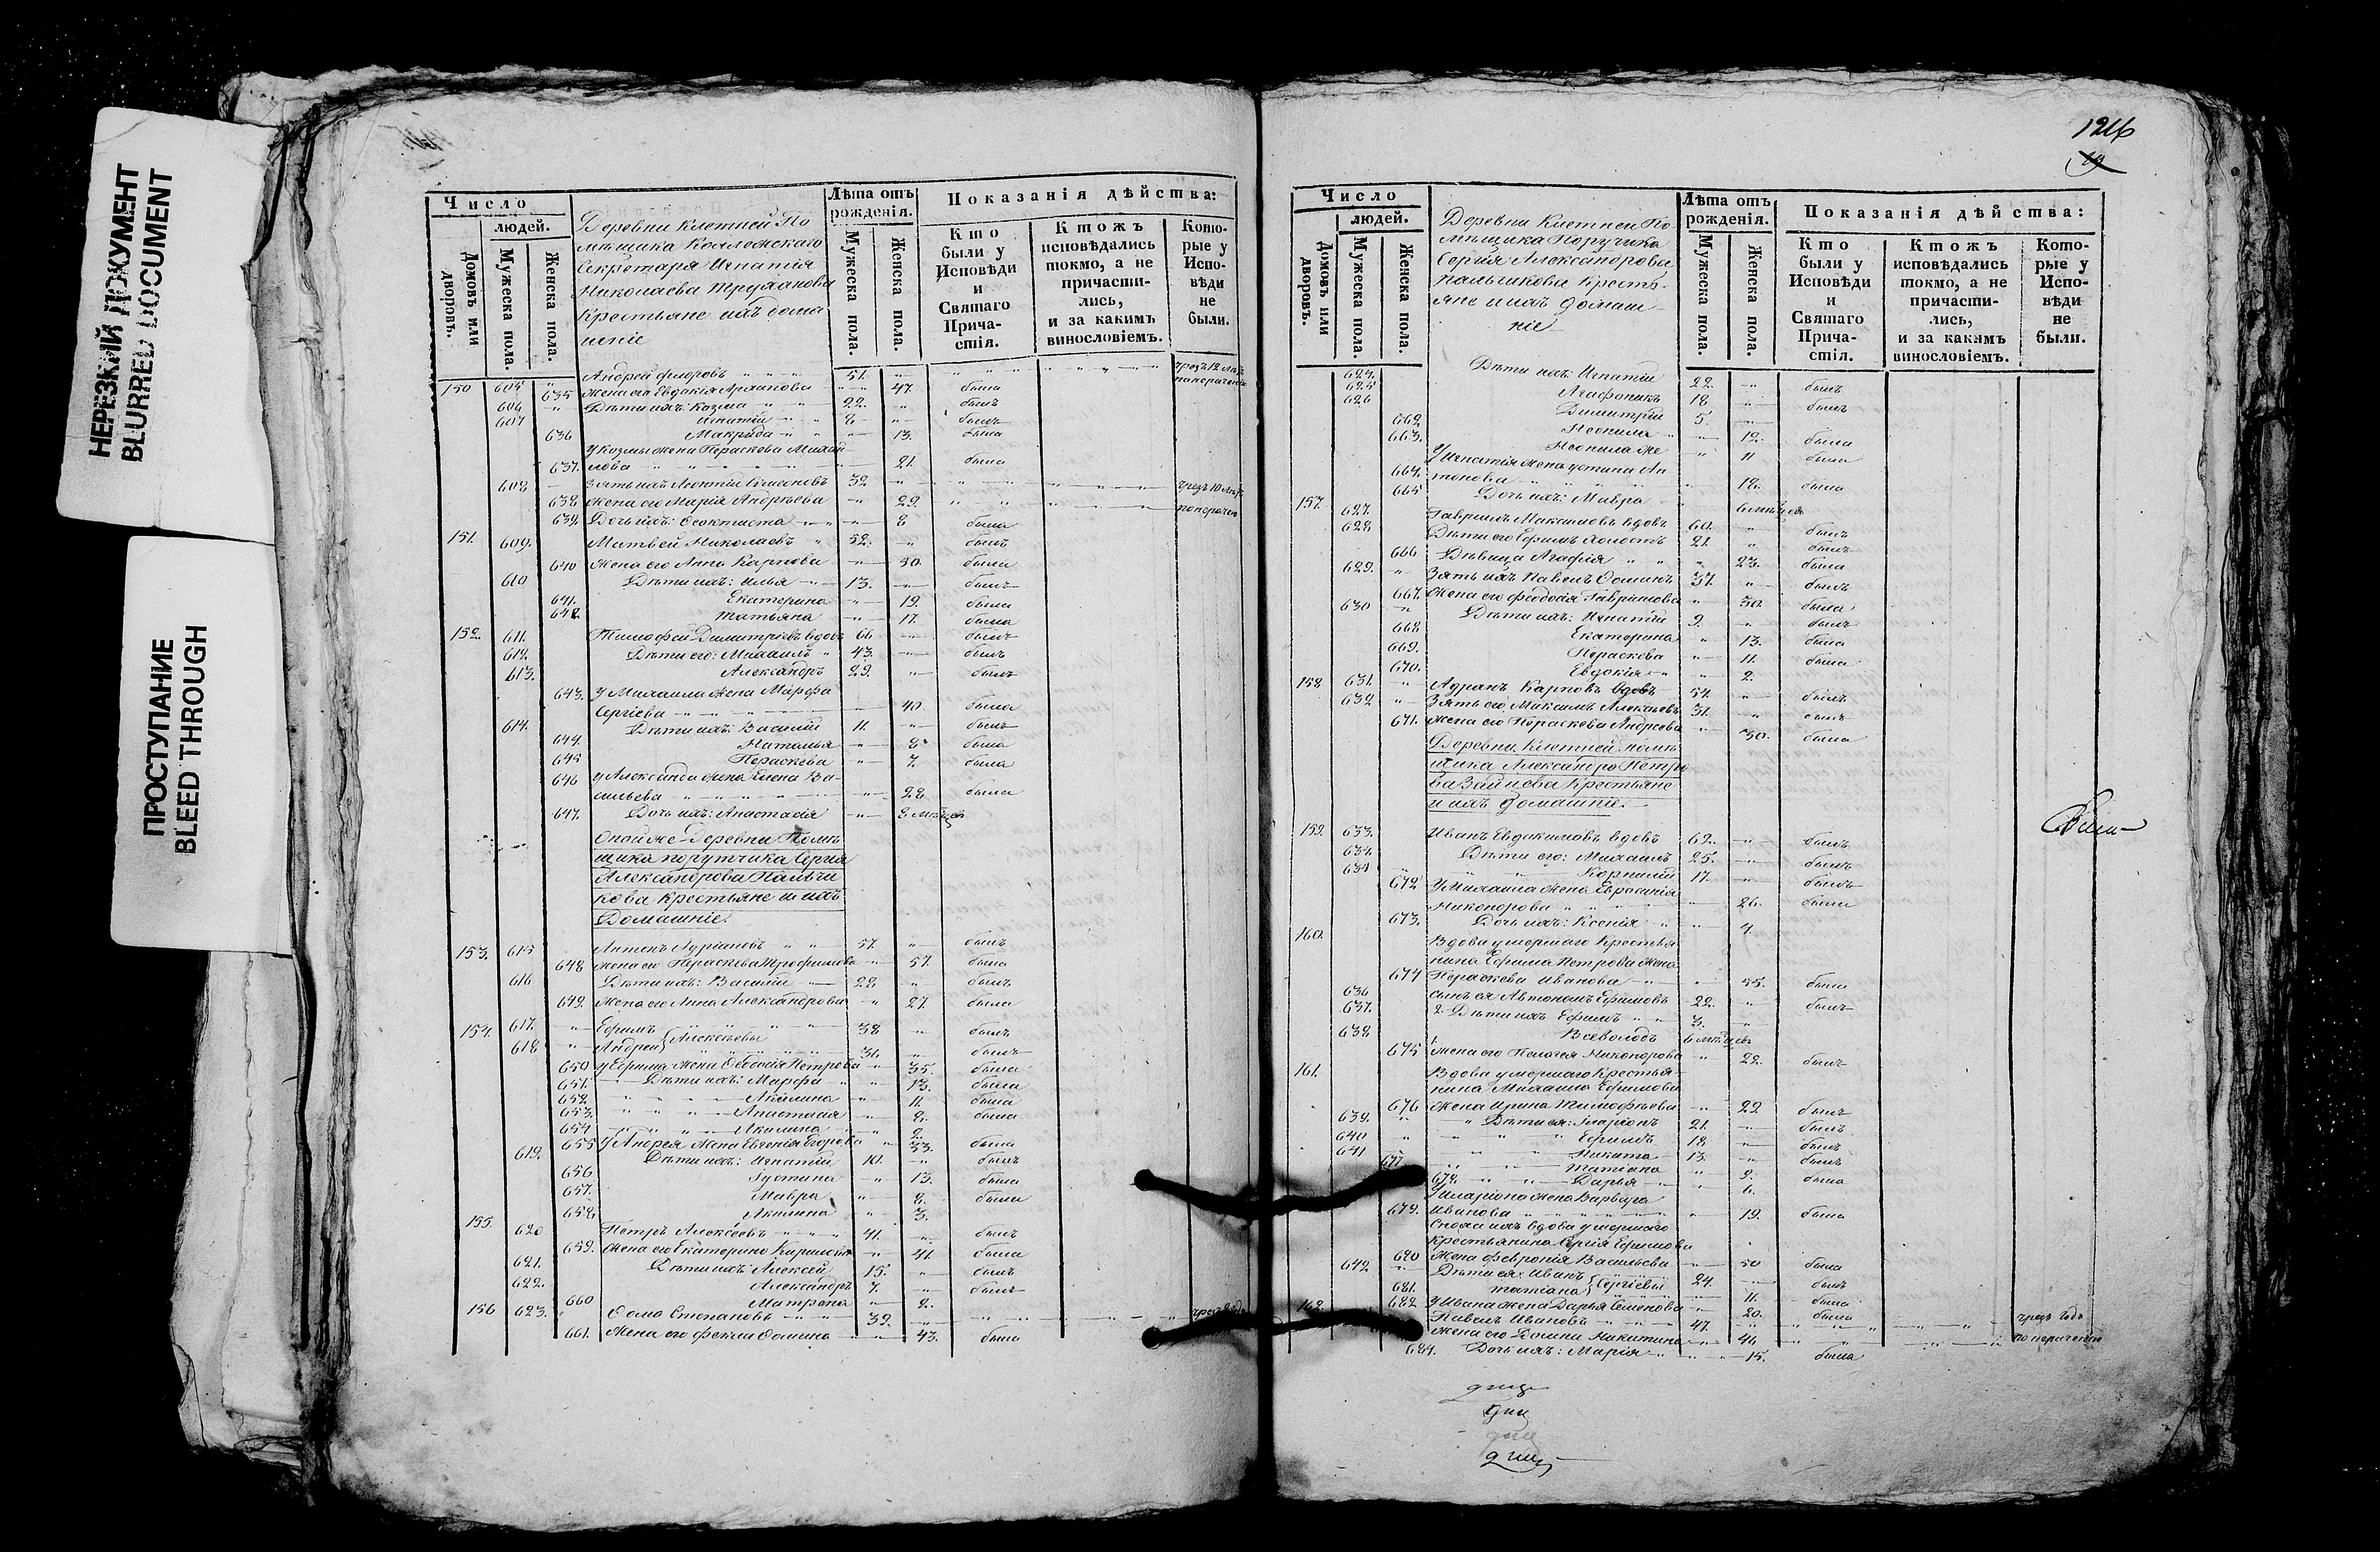 НЕРЕЗКИЙ ДОКУМЕНТ
BLURRED DOCUMENT
ПРОСТУПАНИЕ
BLEED THROUGH
Число
людей.
Домовъ или дворовъ.
Мужеска пола.
Женска пола.
Деревни Клетней По
мѣщика Коллежскаго
Секретаря Игнатія
Николаева Труханова
Крестьяне ихъ дома
шніе
Лѣта отъ рожденія.
Мужеска пола.
Женска пола.
Показанія дѣйства:
Кто были у Исповѣди и Святаго Прича-стія.
Ктожъ исповѣдались токмо, а не причасти-лись, и за какимъ винословіемъ.
Кото-рые у Испо-вѣди не были.
150 605 Андрей Флоровъ 51.
635 Жена его Евдокія 47. была
606 Дѣти ихъ: Козма 22. былъ
607 Игнатій 8 былъ
636 Макрида 13. была
У Козмы жена Параскева Михай
637. лова 21. была
608 Зять ихъ Леонтій 32
638 Жена его Марія Андрѣева 29.
639. Дочь ихъ: Ѳеоктиста 8 была
151. 609. Матвей Николаевъ 52. былъ
640 Жена его Анна Карпова 50. была
610 Дѣти ихъ: Илья 13. былъ
641. Екатерина 19. была
642. Татьяна 17. была
152. 611. Тимофей Димитріевъ вдовъ 66 былъ
612. Дѣти его: Михаилъ 43. былъ
613. Александръ 29. былъ
643. У Михаила жена Марфа
Сергіева 40. была
614. Дѣти ихъ: Василій 11. былъ
644. Наталья 8 была
645 Пераскева 7. была
646 У Александра жена Елена Ва-
сильева 28 была
647. Дочь ихъ: Анастасія
Онойже Деревни Помѣ
щика порутчика Сергія
Александрова Пальчи
кова крестьяне и ихъ
Домашніе.
153. 615 Антонъ Адріановъ 57. былъ
648 Жена его Пераскева Трофимова 57. была
616 Дѣти ихъ: Василій 28 былъ
649. Жена его Анна Александрова 27. была
154. 617. Ефимъ 38 былъ
618 Андрей Алексѣевы 36. былъ
650 У Ефима жена Ѳеодосія Петрова 35. была
651. Дѣти ихъ: Марфа 13. была
652. Акилина 11. была
653. Анастасія 8. была
654 Акилина 2.
655 У Андрея жена Евгенія Егорова 33. была
619. Дѣти ихъ: Игнатій 10. былъ
656 Устина 13. была
657. Мавра 8. была
658 Акилина 3.
155. 620 Петръ Алексѣевъ 41. былъ
659. Жена его Екатерина 41. была
621. Дѣти ихъ: Алексѣй 15. былъ
622. Александръ 7. былъ
660 Матрона 2.
156 623. Ѳома Степановъ 39.
661. Жена его Фекла 43. была
1216
Число
людей.
Домовъ или дворовъ.
Мужеска пола.
Женска пола.
Деревни Клетней По
мѣщика Поручика
Сергія Александрова
Пальчикова Кресть-
яне и ихъ домаш-
ніе
Лѣта отъ рожденія.
Мужеска пола.
Женска пола.
Показанія дѣйства:
Кто были у Исповѣди и Святаго Прича-стія.
Ктожъ исповѣдались токмо, а не причасти-лись, и за какимъ винословіемъ.
Кото-рые у Испо-вѣди не были.
624. Дѣти ихъ: Игнатій 22. былъ
625 Агафоникъ 18 былъ
626 Димитрій 5.
662 Неонила 12. была
663. Неонила же 11 была
У Игнатія жена Устина Ан
664. тонова 18. была
665 Дочь ихъ: Мавра
157. 627. Гаврилъ Максимовъ вдовъ 60. былъ
628 Дѣти его Ефимъ холостъ 21. былъ
666 Дѣвица Агафія 23. была
629. Зять ихъ Павелъ 37. былъ
667. Жена его Феодосія Гаврилова 30. была
630 Дѣти ихъ: Игнатій 9. былъ
668 Екатерина 13. была
669. Пераскева 11. была
670. Евдокія 2.
158 631. Адріанъ Карповъ вдовъ 54. былъ
632 Зять его Максимъ Алексѣевъ 31. былъ
671. Жена его Пераскева Андреева 30. была
Деревни Клетней помѣ
щика Александра Петро
ва Зайцева Крестьяне
и ихъ домашніе.
159. 633. Иванъ Евдокимовъ вдовъ 62. былъ
634. Дѣти его: Михаилъ 25. былъ
635 Корнилій 17. былъ
672 У Михаила жена Евросинія
Никонорова 26. была
673. Дочь ихъ: Ксенія 4.
160. Вдова умершаго Крестья
нина Ефима Петрова жена
674 Пераскева Иванова 55. была
636 Сынъ ея Автономъ Ефимовъ 22. былъ
637. Дѣти ихъ Ефимъ 3.
638 Всеволодъ
675 Жена его Пелагея Никонорова 22.
161. Вдова умершаго Крестья-
нина Михаила Ефимова
676 Жена Ирина Тимофѣева
639. Дѣти ея: Иларіонъ 21. былъ
640 Ефимъ 18 былъ
641 Никита 13. былъ
677 Татіана 9. была
678. Дарья 6.
У Иларіона жена Варвара
679. Иванова 19. была
Сноха ихъ вдова умершаго
крестьянина Сергія Ефимова
680 Жена Февронія Васильева 50 была
642 Дѣти ея: Иванъ Сергіевы 24. былъ
681. Татіана 11. была
682 У Ивана жена Дарья Семенова 20. была
162. Павелъ Ивановъ 47.
Жена его Домна Никитина 46
684. Дочь ихъ: Марія 15. была